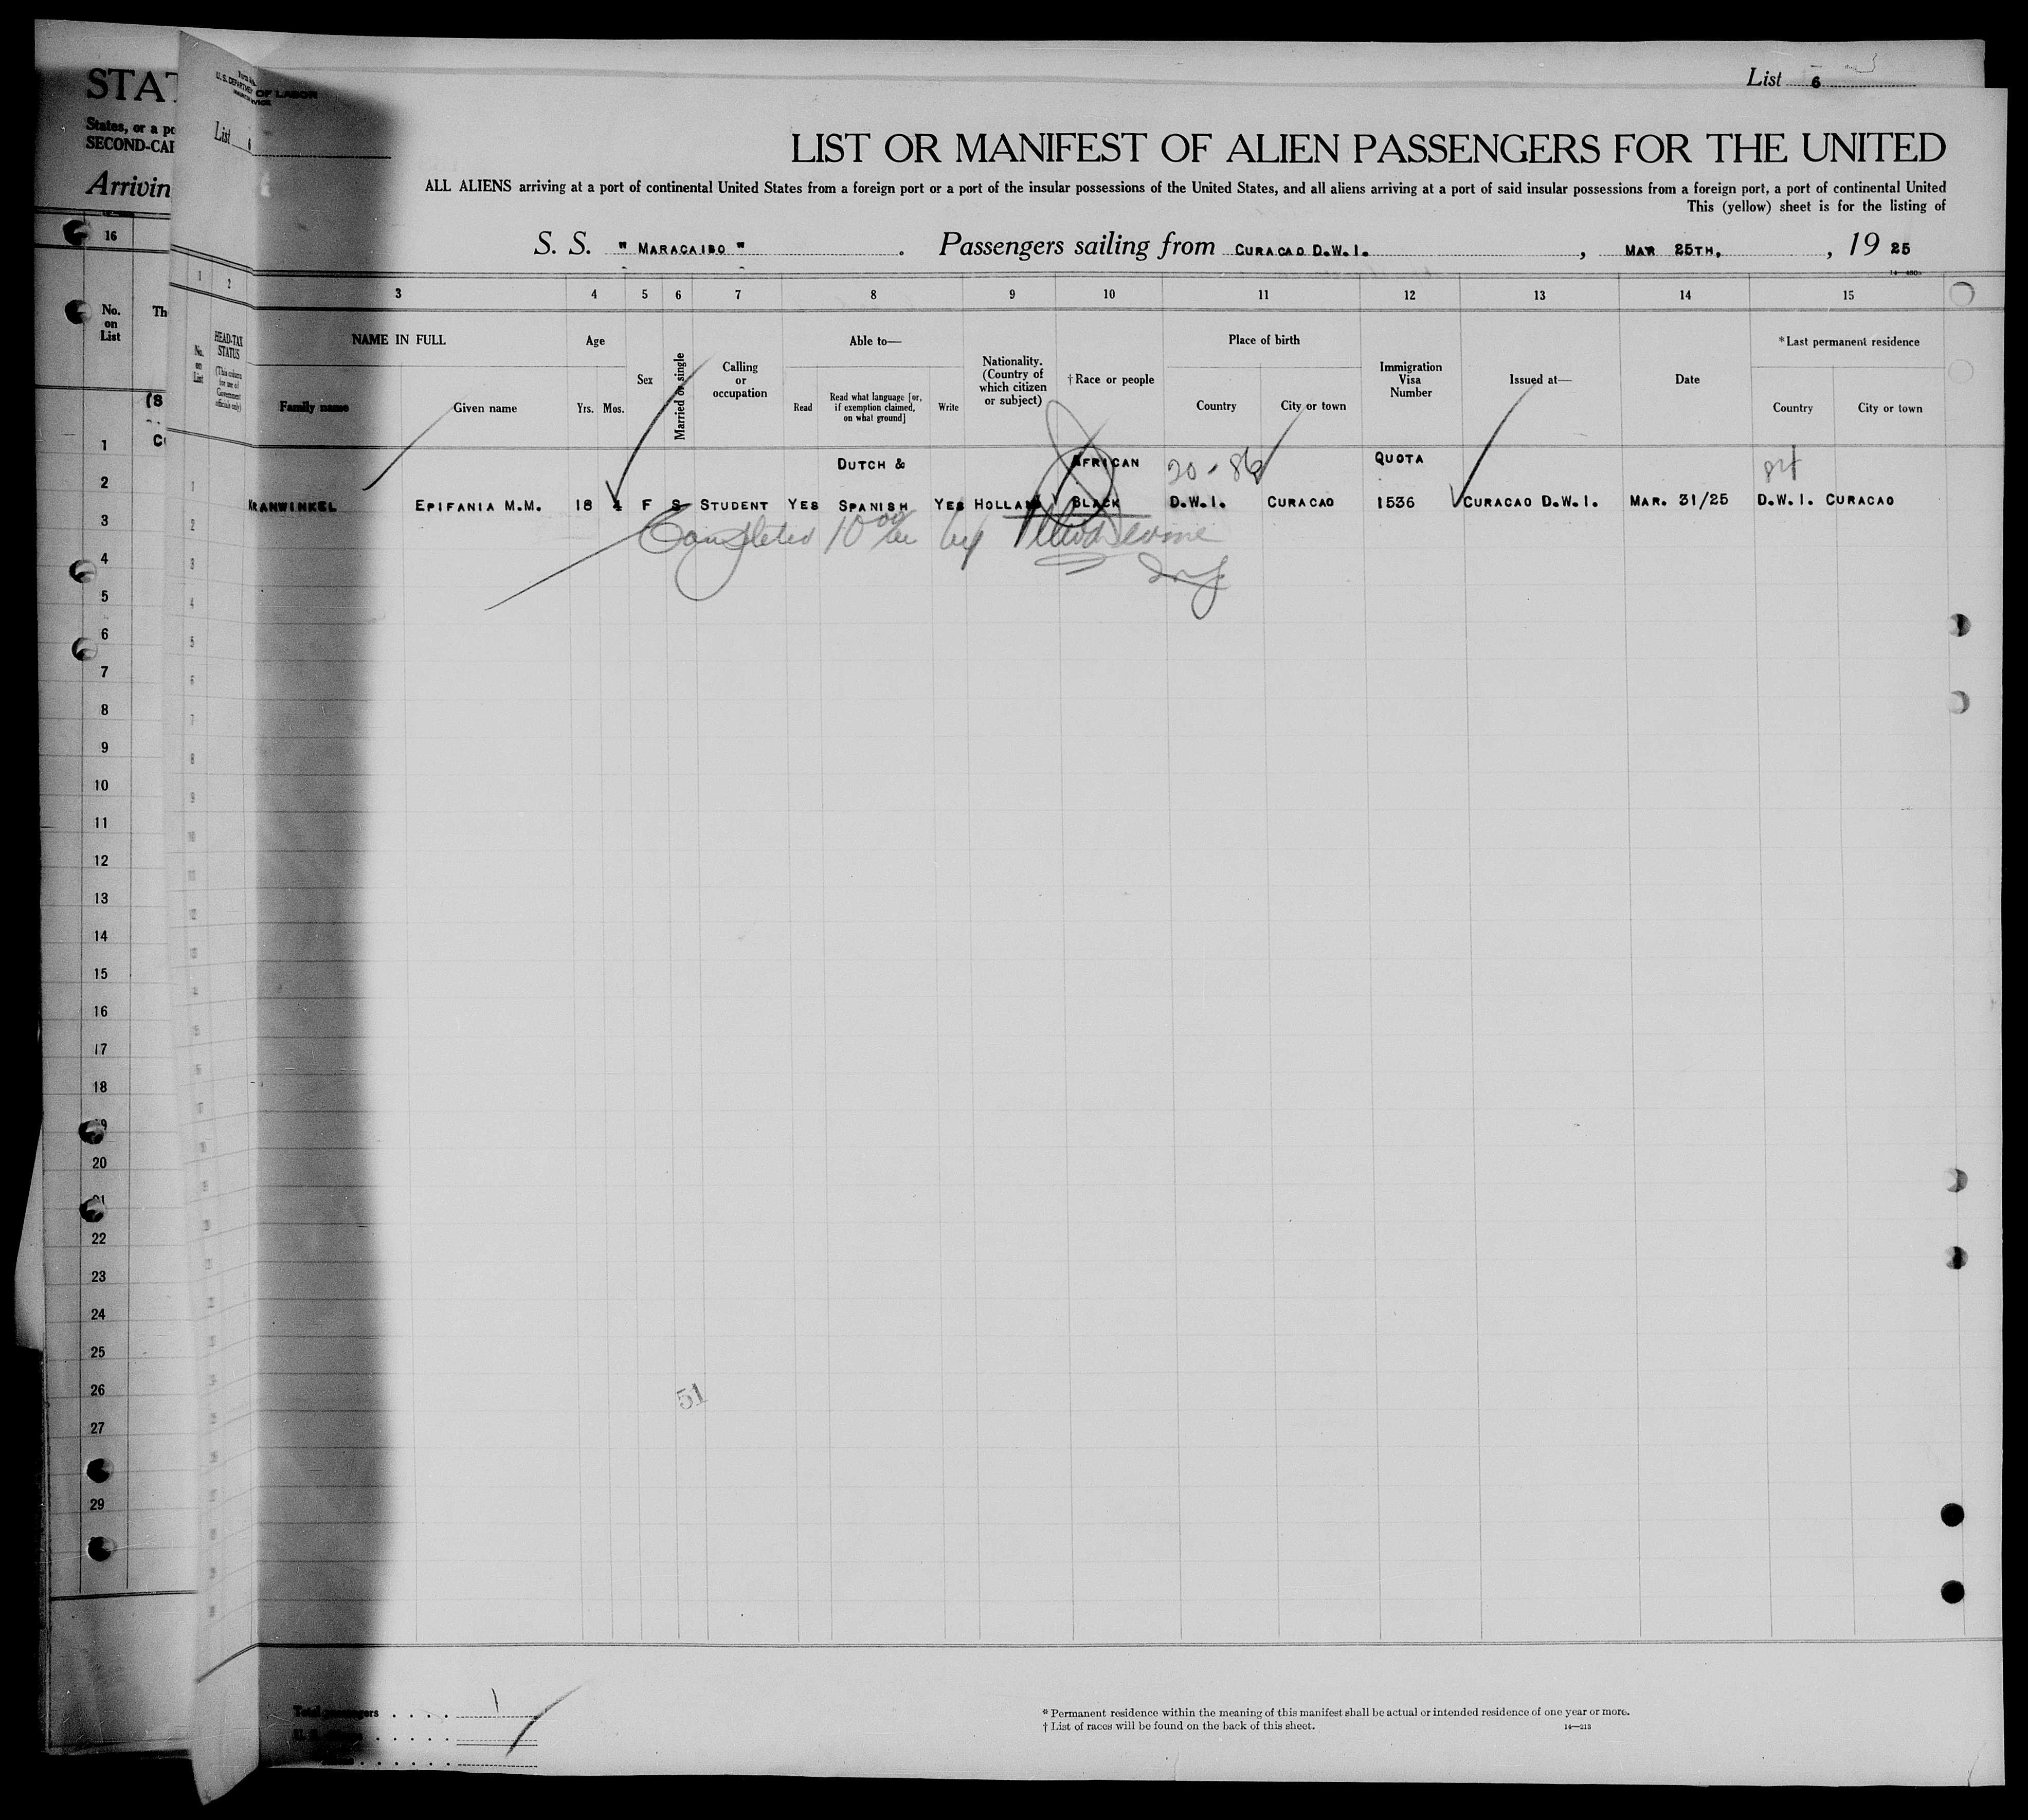 STAT
States, or a po
SECOND-CAB
Arrivin
16
No.
on
List
Th
(S
C
1
2
3
4
5
6
7
8
9
10
11
12
13
14
15
16
17
18
20
21
22
23
24
25
26
27
29
U. S. DEPARTMENT OF LABOR
List 6
List 6
LIST OR MANIFEST OF ALIEN PASSENGERS FOR THE UNITED
ALL ALIENS arriving at a port of continental United States from a foreign port or a port of the insular possessions of the United States, and all aliens arriving at a port of said insular possessions from a foreign port, a port of continental United
This (yellow) sheet is for the listing of
S. S. " MARACAIBO ". Passengers sailing from CURACAO D.W.I., MAR 25TH., 1925
1 2 3 4 5 6 7 8 9 10 11 12 13 14 15
No. on List
HEAD-TAX STATUS
(This column for use of Government officials only)
NAME IN FULL
Family name
Given name
Age
Yrs. Mos.
Sex
Married or single
Calling or occupation
Able to—
Read
Read what language [or, if exemption claimed, on what ground]
Write
Nationality. (Country of which citizen or subject)
†Race or people
Place of birth
Country
City or town
Immigration Visa Number
Issued at—
Date
*Last permanent residence
Country
City or town
DUTCH & AFRICAN 20-86 QUOTA
KRANWINKEL EPIFANIA M.M. 18 4 F S STUDENT YES SPANISH YES HOLLAND BLACK D.W.I. CURACAO 1536 CURACAO D.W.I. MAR. 31/25 D.W.I. CURACAO
Completed 10 00 by
51
Total passengers 1
* Permanent residence within the meaning of this manifest shall be actual or intended residence of one year or more.
† List of races will be found on the back of this sheet.
14—213